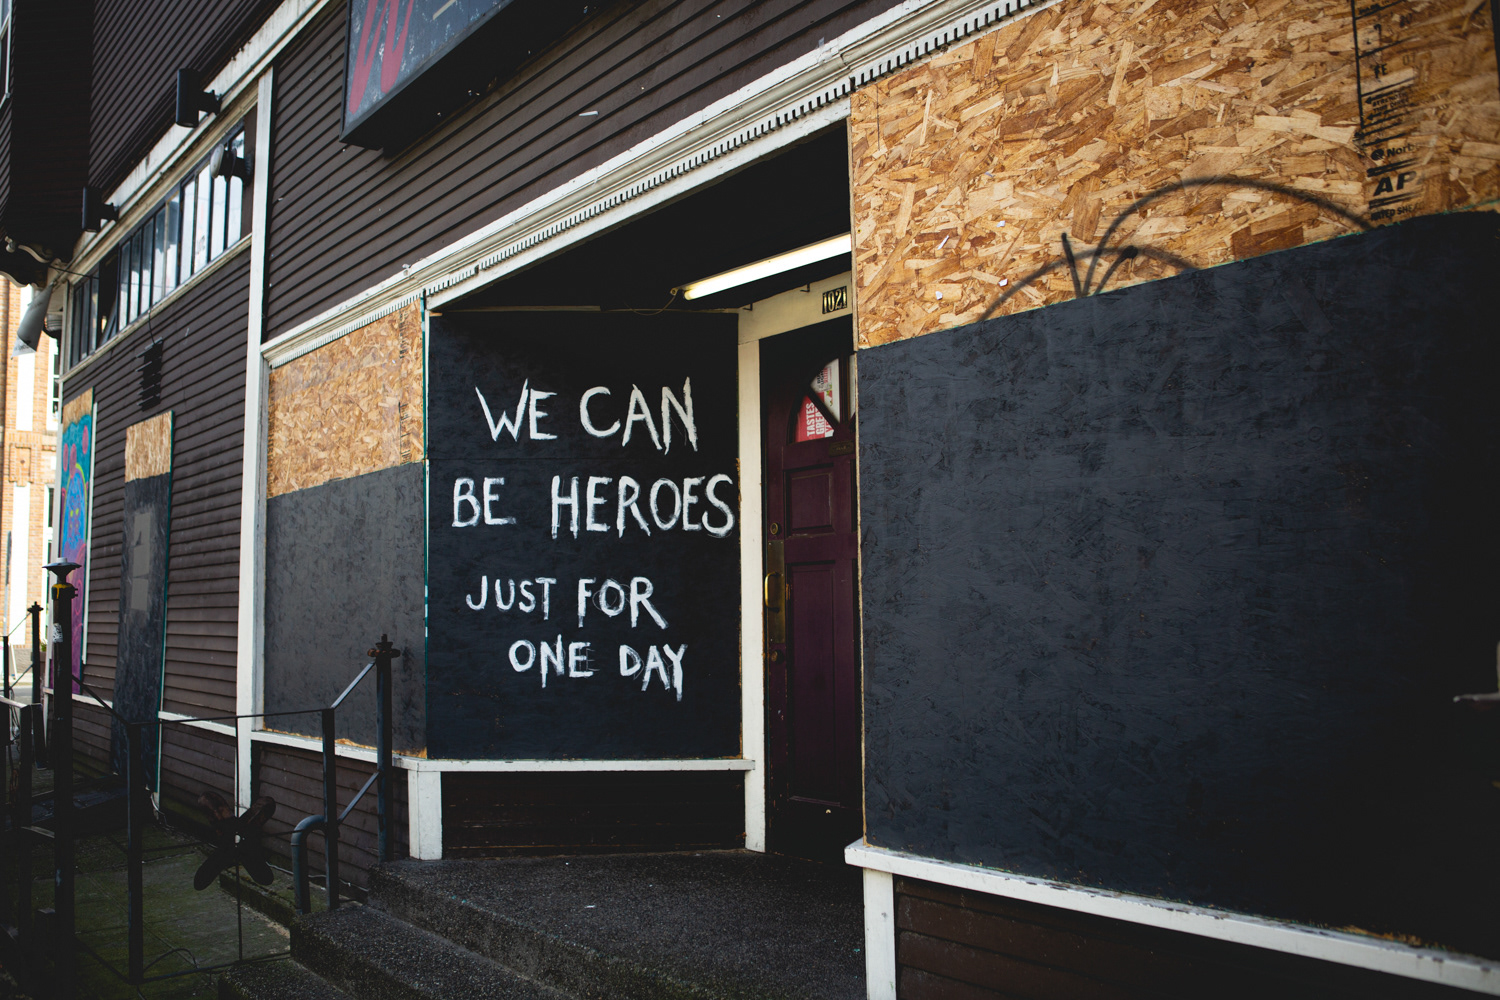 W
1021
WE CAN
BE HEROES
JUST FOR
ONE DAY
TASTES
GREA
Norb
AP